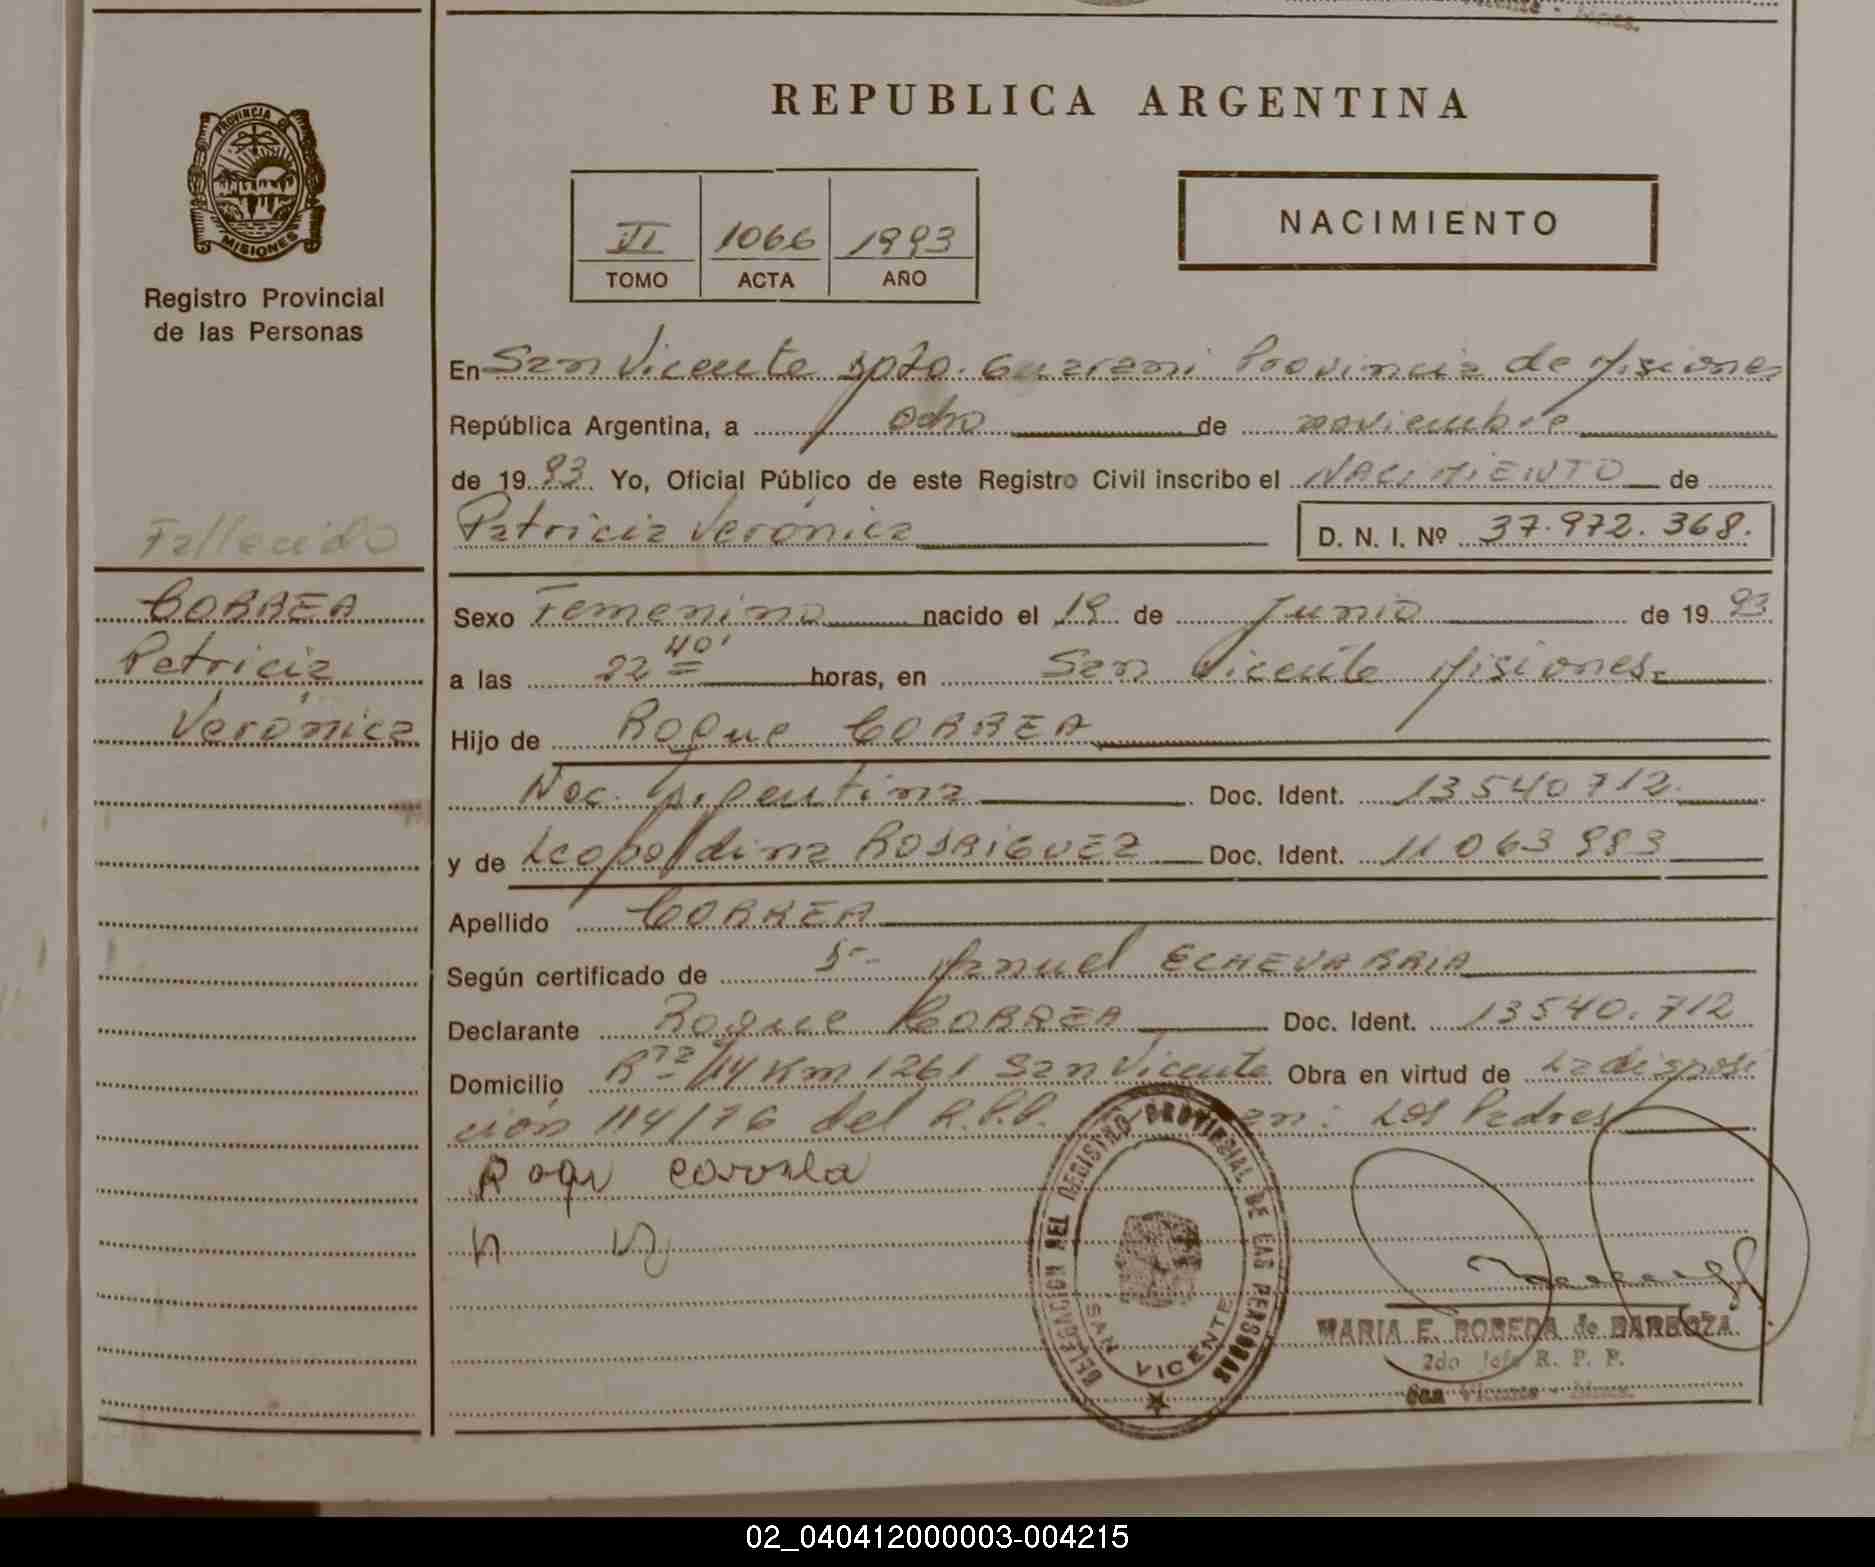 REPUBLICA ARGENTINA
PROVINCIA DE
MISIONES
Registro Provincial
de las Personas
VI 1066 1993
TOMO ACTA AÑO
NACIMIENTO
En San Vicente Dpto. Guarani Provincia de Misiones
República Argentina, a ocho de noviembre
de 19 93 Yo, Oficial Público de este Registro Civil inscribo el NACIMIENTO de
Patricia Verónica D. N. I. Nº 37.972.368.
Fallecido
CORREA
Patricia
Verónica
Sexo Femenino nacido el 19 de Junio de 19 93
a las 22 40' horas, en San Vicente Misiones.
Hijo de Roque CORREA
Nac. Argentina Doc. Ident. 13540712.
y de Leopoldina RODRIGUEZ Doc. Ident. 11 063 983
Apellido CORREA
Según certificado de Manuel ECHEVARRIA
Declarante Roque CORREA Doc. Ident. 13540.712
Domicilio Rta 14 Km 1261 San Vicente Obra en virtud de La disposi
ción 114/76 del R.P.P. en: Los Padres
Roqu
DELEGACION DEL REGISTRO PROVINCIAL DE LAS PERSONAS
SAN VICENTE
MARIA E. BOBEDA de BARBOZA
2do Jefe R. P. P.
San Vicente - Mnes.
02_040412000003-004215